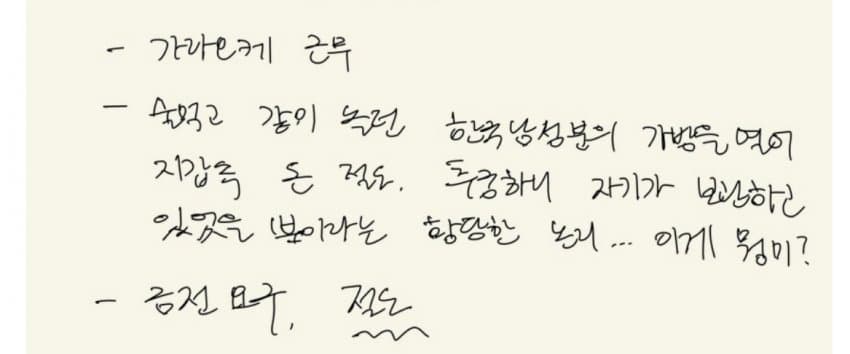 - 가라오케 근무
- 술먹고 같이 놀던 한국남성분의 가방을 열어
지갑속 돈 절도. 추궁하니 자기가 보관하고
있었을 뿐이라는 황당한 논리... 이게 뭥미?
- 금전요구, 절도